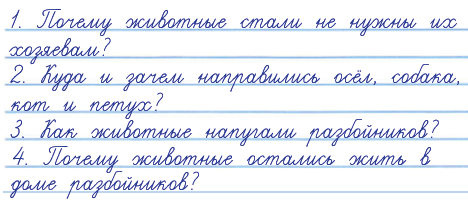 1. Почему животные стали не нужны их
хозяевам?
2. Куда и зачем направились осёл, собака,
кот и петух?
3. Как животные напугали разбойников?
4. Почему животные остались жить в
доме разбойников?